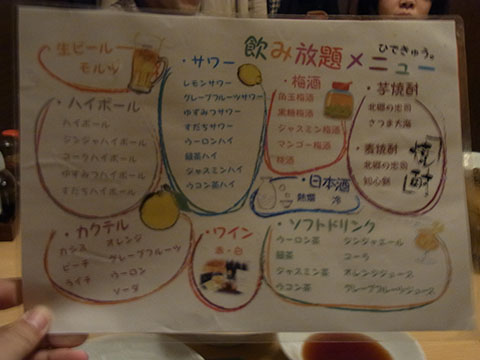 飲み放題メニュー
ひできゅう。
生ビール
モルツ
・ハイボール
ハイボール
ジンジャハイボール
コークハイボール
ゆずみつハイボール
すだちハイボール
・サワー
レモンサワー
グレープフルーツサワー
ゆずみつサワー
すだちサワー
ウーロンハイ
緑茶ハイ
ジャスミンハイ
ウコン茶ハイ
・梅酒
角玉梅酒
黒糖梅酒
ジャスミン梅酒
マンゴー梅酒
桃酒
・芋焼酎
さつま大海
・麦焼酎
焼酎
・日本酒
熱燗 冷
・カクテル
カシス オレンジ
ピーチ グレープフルーツ
ライチ ウーロン
ソーダ
・ワイン
赤・白
・ソフトドリンク
ウーロン茶 ジンジャエール
緑茶 コーラ
ジャスミン茶 オレンジジュース
ウコン茶 グレープフルーツジュース